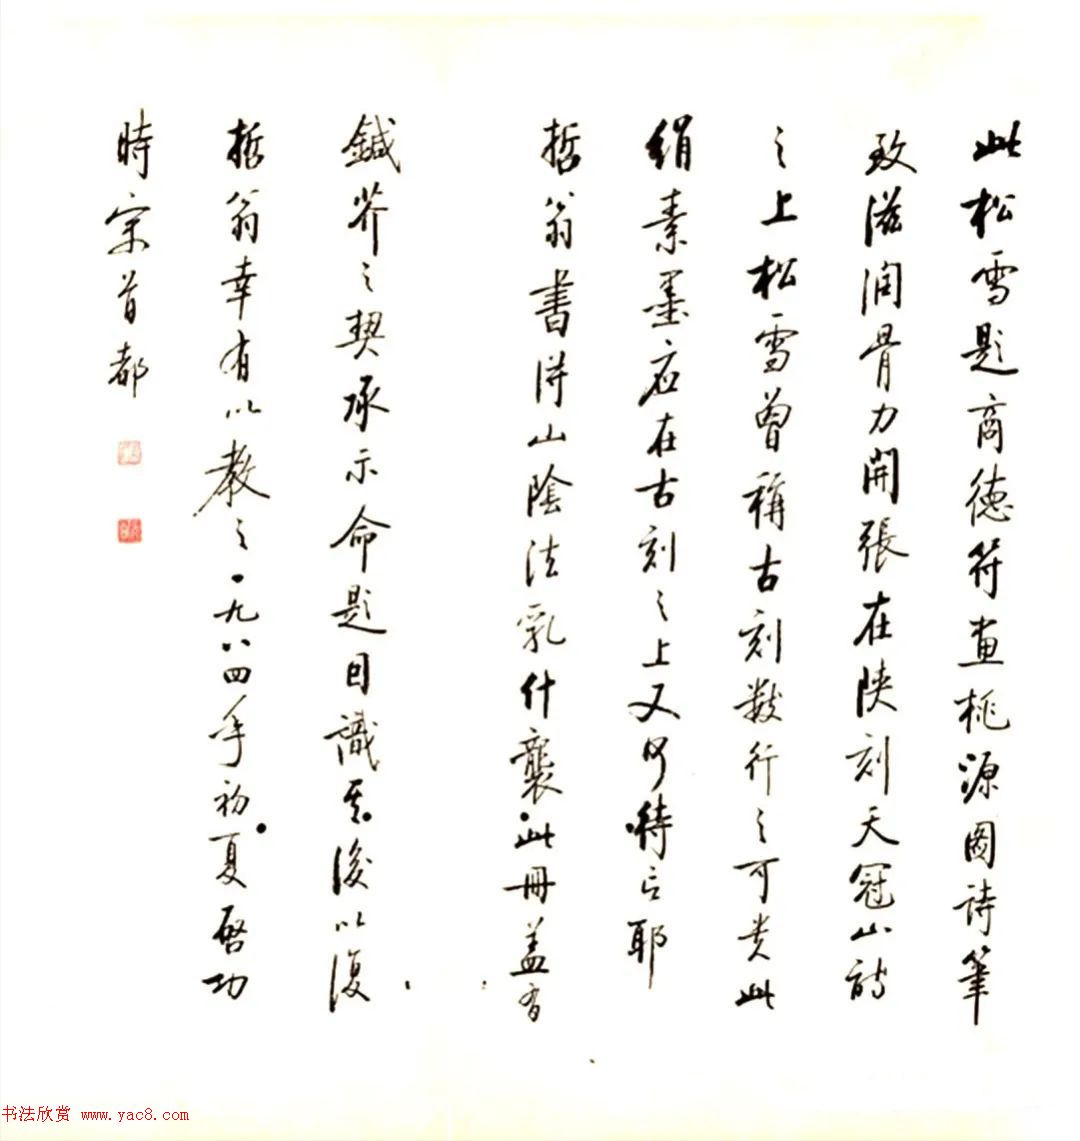 此松雪題商德符畫桃源圖詩筆
致滋潤骨力開張在陝刻天冠山詩
之上松雪曾稱古刻數行之可貴此
絹素墨應在古刻之上又何待言耶
哲翁書得山陰法乳什襲此冊蓋有
鍼芥之契承示命題因識其後以復
哲翁幸有以教之一九八四年初夏啓功
時寓首都
书法欣赏 www.yac8.com